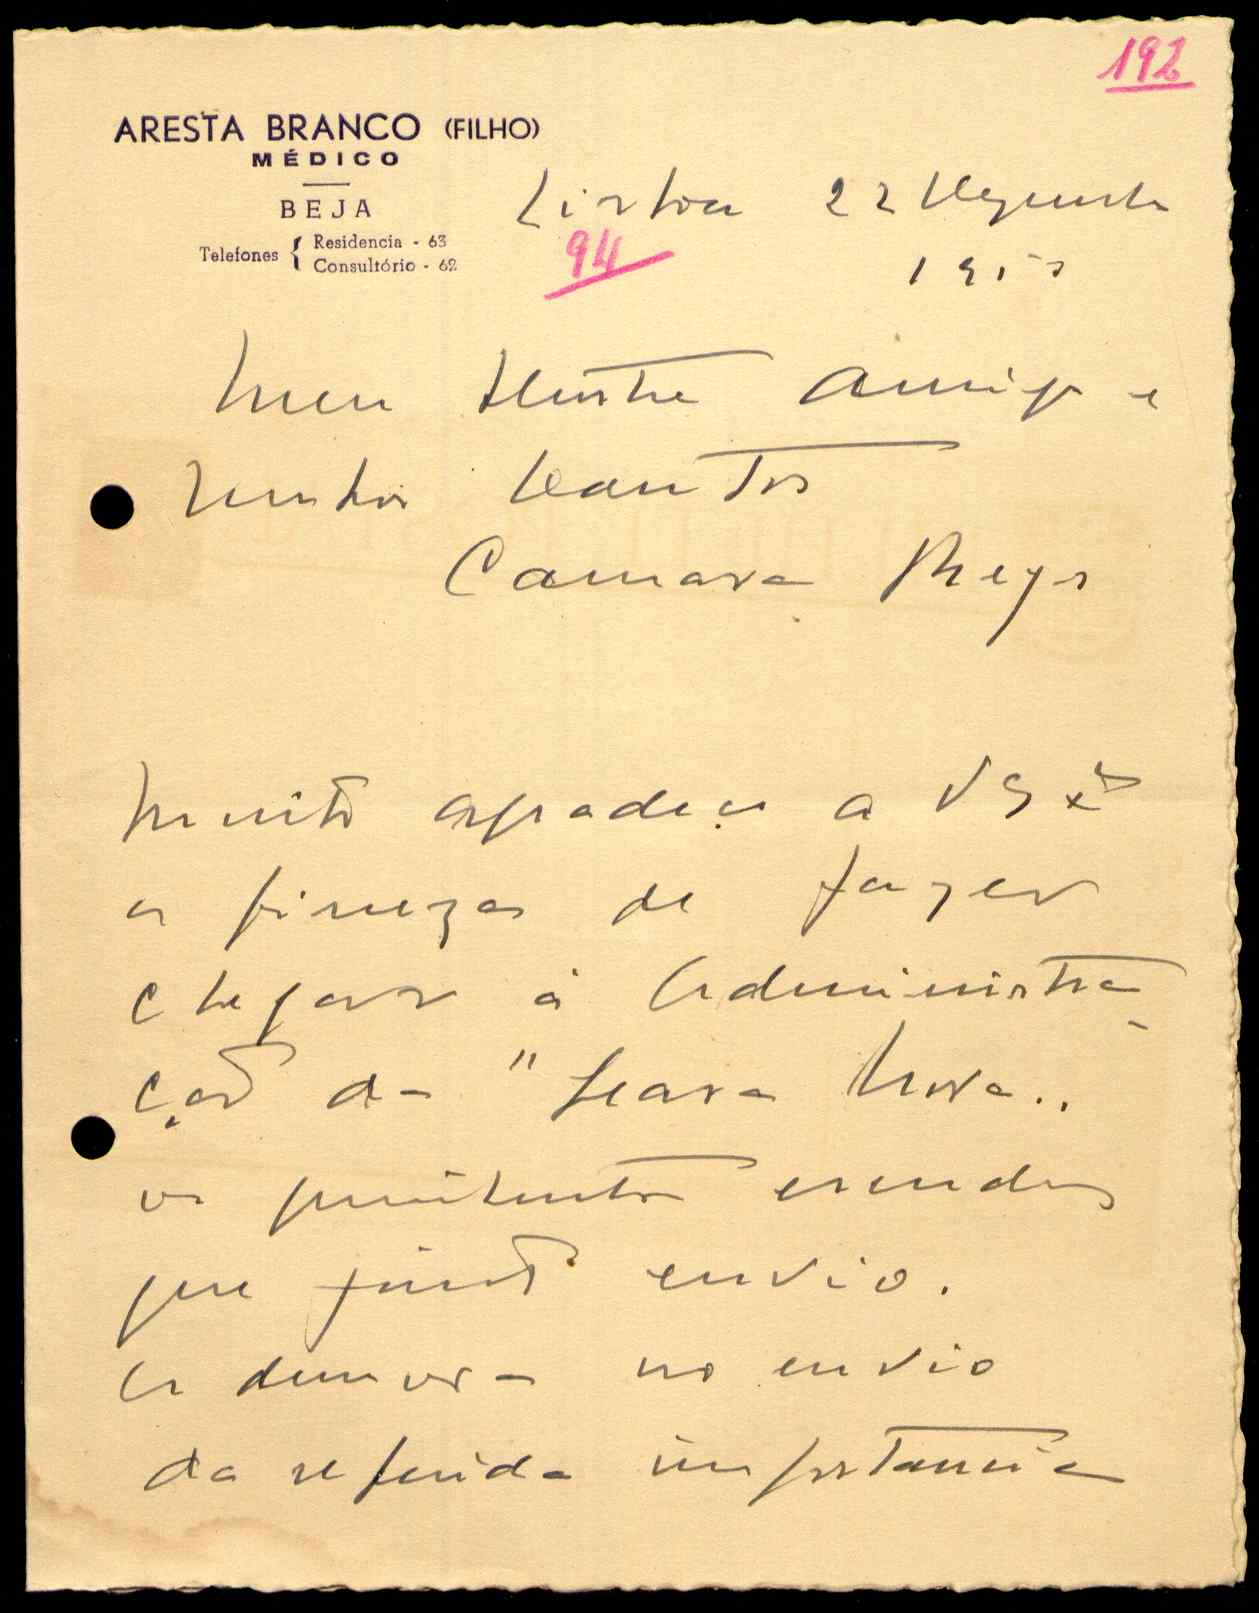 192
ARESTA BRANCO (FILHO)
MÉDICO
BEJA
Telefones { Residencia - 63
Consultório - 62
Lisboa 22
94
195
Meu Ilustre Amigo e
Senhor Doutor
Camara Reys
Muito agradeço a V Ex.ª
a fineza de fazer
chegar á Administra
ção da "Seara Nova"
os
que junto envio.
A demora no envio
da referida importancia